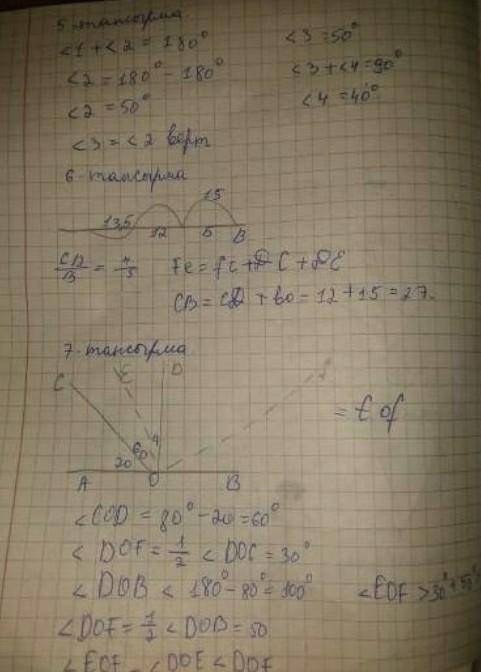 5-тапсырма.
<1 + <2 = 180°
<2 = 180° - 180°
<2 = 50°
<3 = <2 верт
<3 = 50°
<3 + <4 = 90°
<4 = 40°
6-тапсырма
15
13,5 12 5 B
CD/B = 4/5
Fe = fc + DC + DE
CB = CD + BO = 12 + 15 = 27.
7-тапсырма
C E D
20 60
A O B
= Eof
<COD = 80° - 20 = 60°
< DOF = 1/2 < DOC = 30°
< DOB < 180° - 80° = 100°
<EOF > 30° + 50°
<DOF = 1/2 < DOB = 50
<EOF = <DOE < DOF